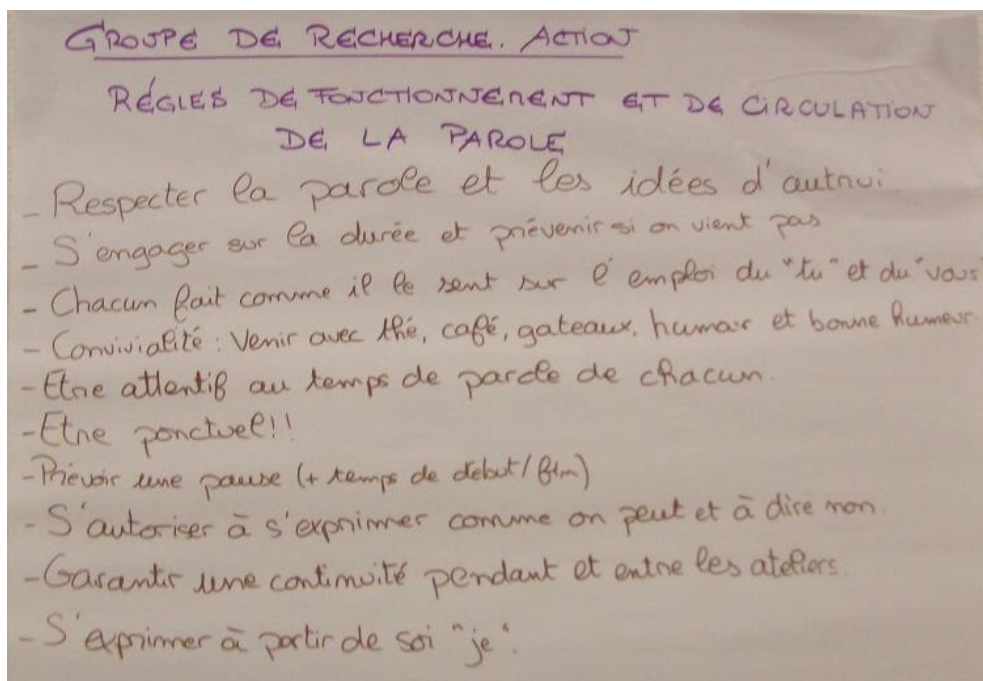 GROUPE DE RECHERCHE. ACTION
RÉGLES DE FONCTIONNEMENT ET DE CIRCULATION
DE LA PAROLE
- Respecter la parole et les idées d'autrui.
- S'engager sur la durée et prévenir si on vient pas
- Chacun fait comme il le sent sur l'emploi du "tu" et du "vous"
- Convivialité : Venir avec thé, café, gateaux, humour et bonne humeur.
- Etre attentif au temps de parole de chacun.
- Etre ponctuel!!
- Prévoir une pause (+ temps de début / fin)
- S'autoriser à s'exprimer comme on peut et à dire non.
- Garantir une continuité pendant et entre les ateliers.
- S'exprimer à partir de soi "je".